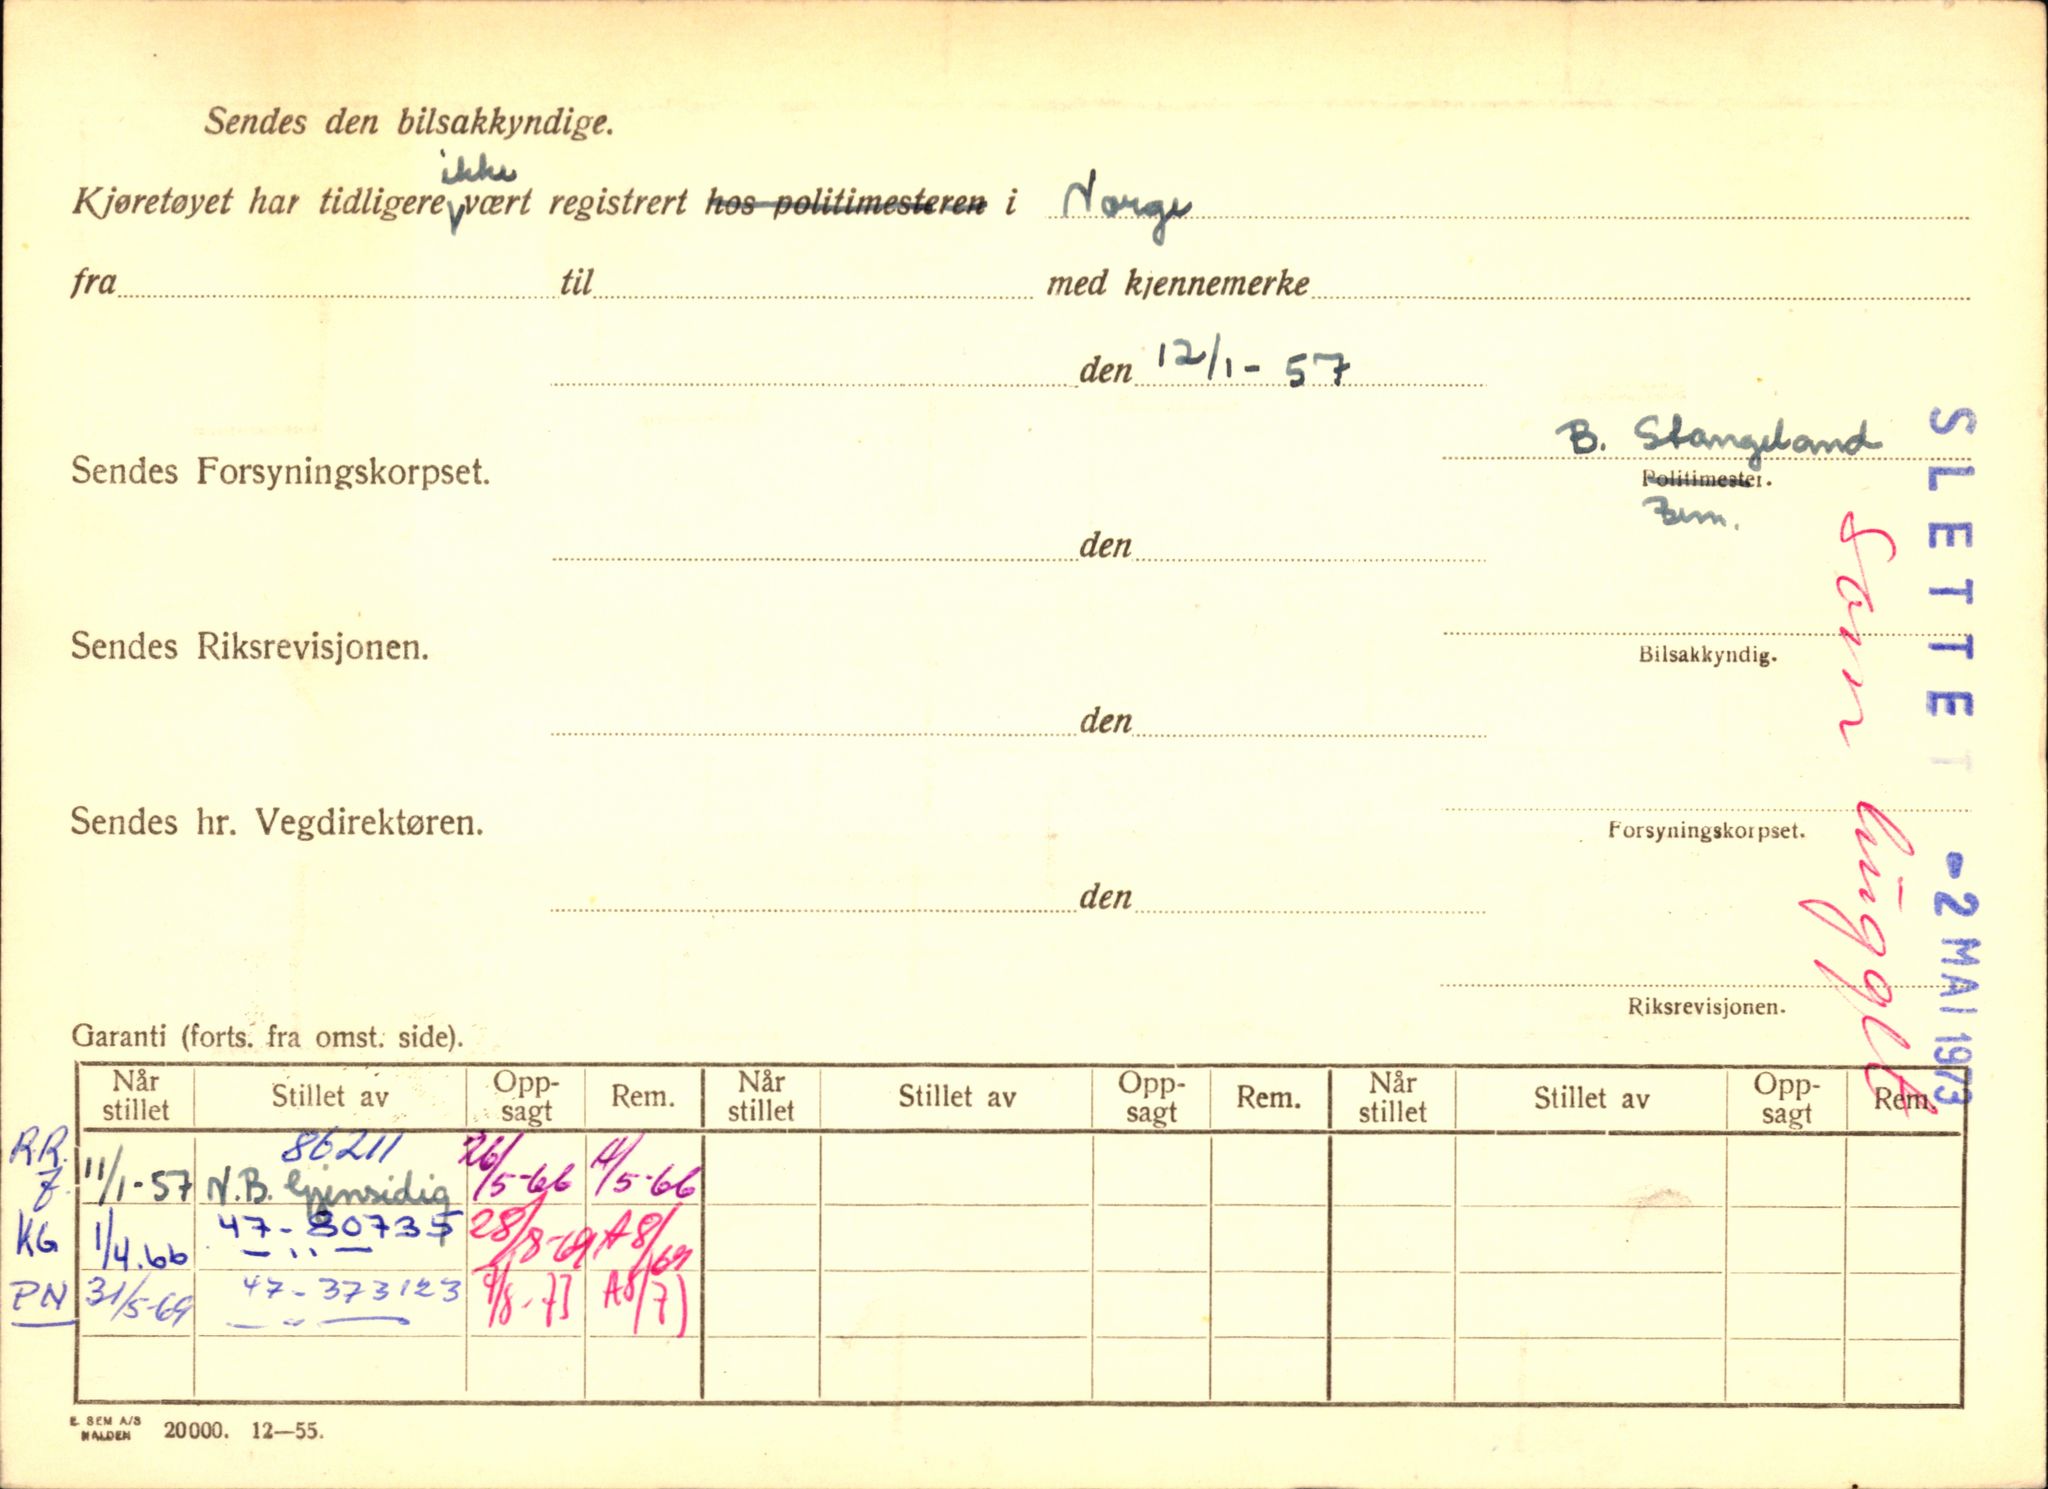 Sendes den bilsakkyndige.
ikke
Kjøretøyet har tidligere vært registrert hos politimesteren i Norge
fra til med kjennemerke
den 12/1 - 57
B. Stangeland
Sendes Forsyningskorpset.
Politimester.
den
Sendes Riksrevisjonen.
Bilsakkyndig.
den
Sendes hr. Vegdirektøren.
Forsyningskorpset.
den
Riksrevisjonen.
SLETTET -2 MAI 1973
Garanti (forts. fra omst. side).
Når stillet Stillet av Opp-sagt Rem. Når stillet Stillet av Opp-sagt Rem. Når stillet Stillet av Opp-sagt Rem.
R.R. 86211
11/1-57 N.B. Gjensidig 26/5-66 /5-66
KG 1/4.66 47-80735 28/8-69 A8/69
— " —
PN 31/5-69 47-373123 /8-73 A8/73
— " —
E. SEM A/S
HALDEN 20000. 12—55.